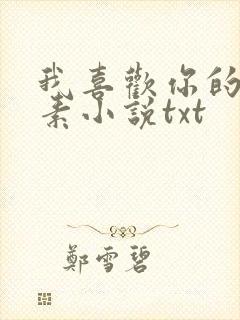 我喜歡你的
素小説txt
鄭雪碧